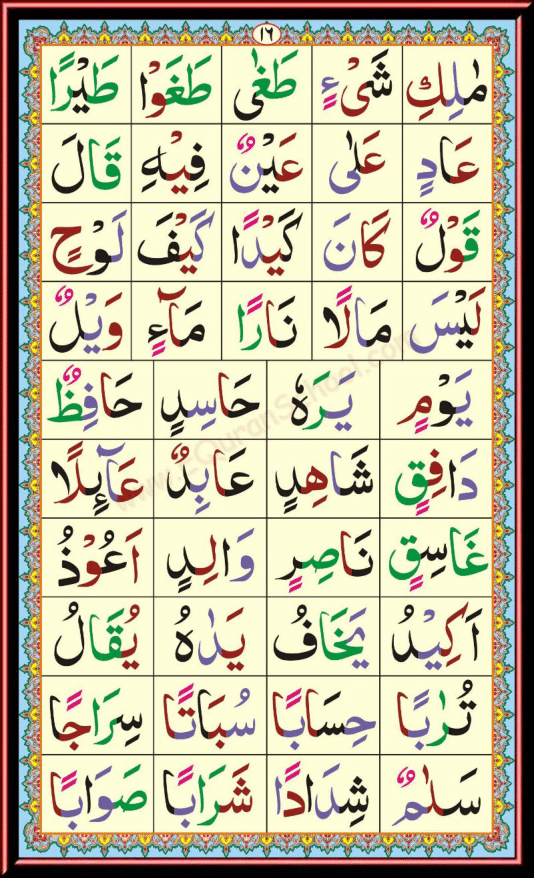 ١٦
مٰلِكِ شَیْءٍ طَغٰی طَغَوْا طَیْرًا
عَادٍ عَلٰی عَیْنٌ فِیْهِ قَالَ
قَوْلٌ كَانَ كَیْدًا كَیْفَ لَوْحٍ
لَیْسَ مَالًا نَارًا مَآءٍ وَیْلٌ
یَوْمٍ یَرَهٗ حَاسِدٍ حَافِظٌ
دَافِقٍ شَاهِدٍ عَابِدٌ عَآئِلًا
غَاسِقٍ نَاصِرٍ وَالِدٍ اَعُوْذُ
اَكِیْدُ یَخَافُ یَدٰهُ یُقَالُ
تُرٰبًا حِسَابًا سُبَاتًا سِرَاجًا
سَلٰمٌ شِدَادًا شَرَابًا صَوَابًا
www.eQuranSchool.com